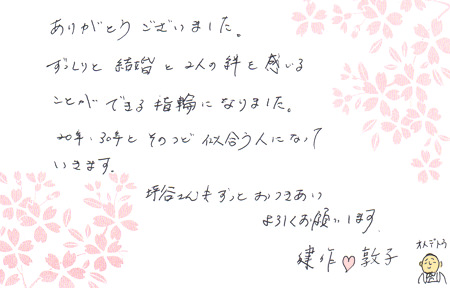 ありがとうございました。
ずっしりと結婚と2人の絆を感いる
ことができる指輪になりました。
20年、30年とそのつど似合う人になって
いきます。
坪谷さんもずっとおつきあい
よろしくお願いします
建作♡敦子
オメデトウ